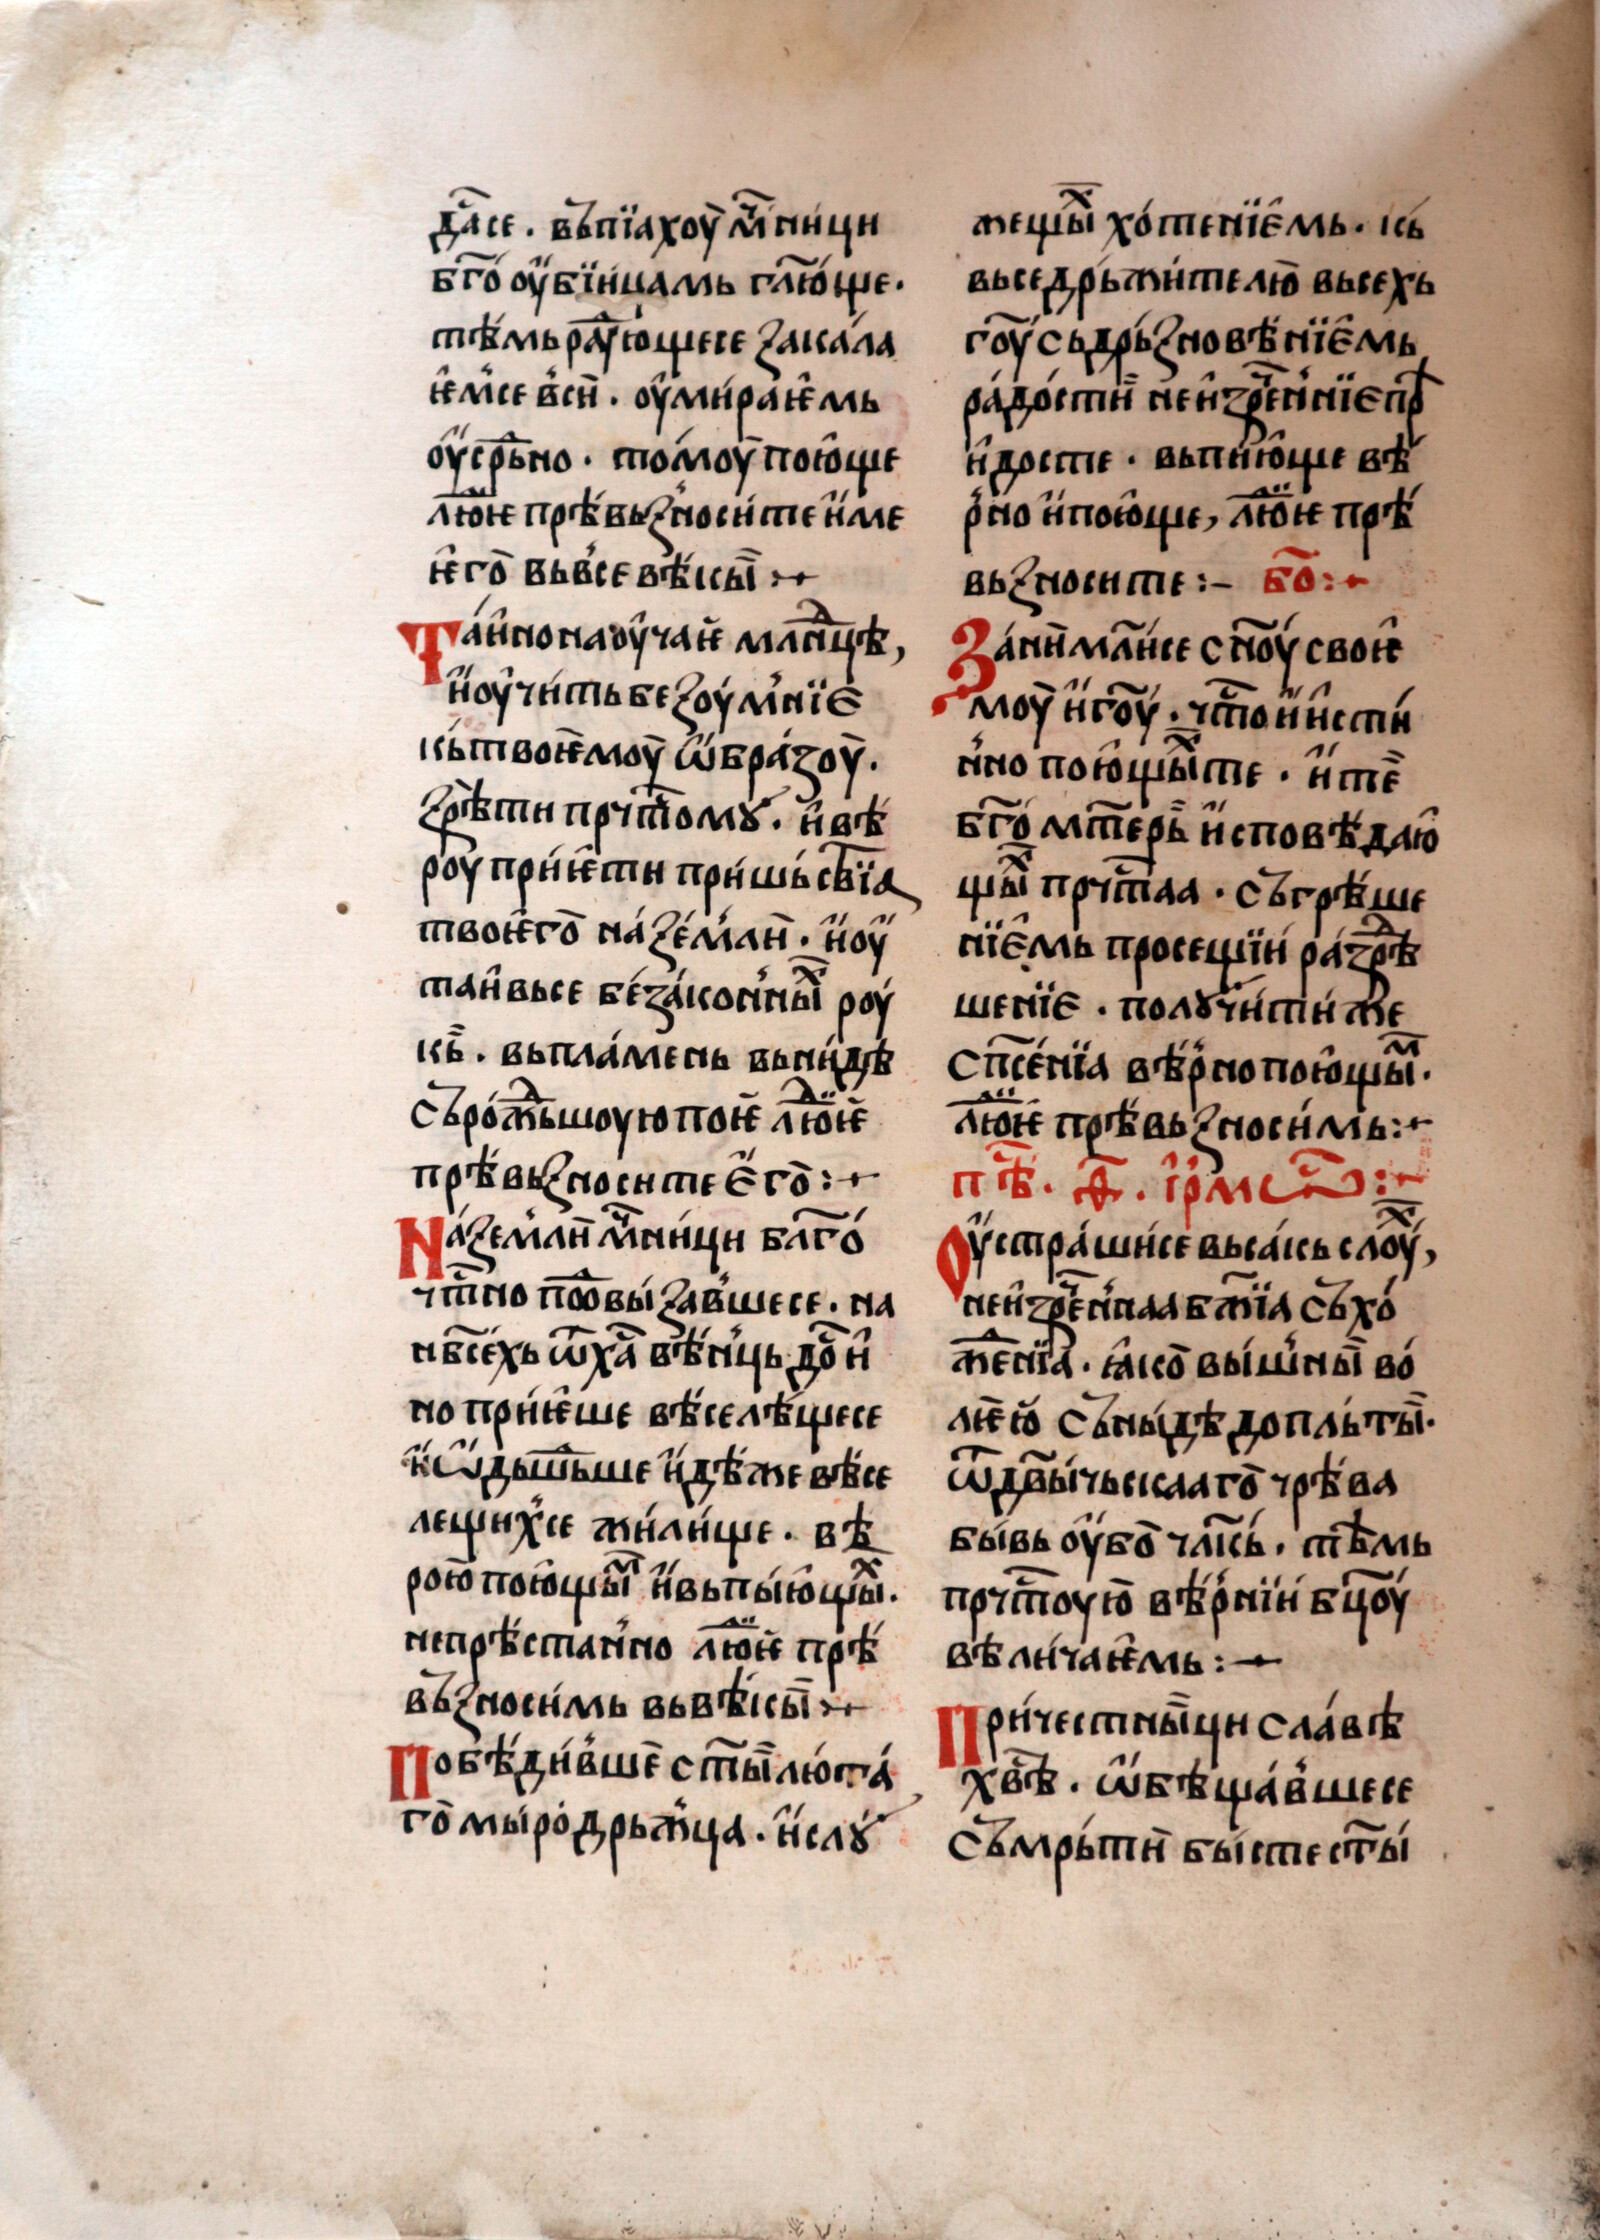 да̑се . въпїахоу̀ мч҃ници
бг҃оꙋ҆бїи́цамь гл҃юще .
тѣ́мь раⷣую́щесе закала
ѥ́м'се в'сѝ . оу҆мѝраѥ̑мь
оу҆срьⷣно . то́моу̀ пою̑ще
люⷣїѥ прѣ́вьзно́сѝте и҆ме
ѥ҆го̀ вь в'се вѣ́кы̀ :+
Та́и҆но наоу҆чаѥ̀ млⷣнцѣ ,
и҆оу҆чи́ть безоу́м'нїе
кь твоѥ́моу̀ ѡ҆бра́зоу̀ .
зрѣ́ти прчⷭ҇томꙋ . и҆ вѣ́
роу прїѥ́ти при́шь́ствїа
твоѥ̑го̀ на́ зе́м'лѝ . и҆оу҆
таи̑вьсе бе́за́кон'ныⷯ роу́
кь̀ . вьпла́мень вьни́дѣ
съро́жⷣьшоую поѥ̀ люⷣїѥ
прѣ́вьзносите е҆го̀ :+
На́ зем'лѝ мч҃ни́ци благо́
чⷭ҇тно поⷣвы́зав'шесе . на
нб҃сѣ́хь ѿ ха̑ вѣ́н'ць до̑и҆
но при́ѥ̑ше вѣ́селѣ́щесе
и҆ ѿдьшⷣьше и҆дѣ́же вѣ́се
лещих'се жи́ли́ще . вѣ
рою̀ пою̑щыⷨ и҆ вьпы́ю̑щыⷯ .
непрѣ́стан'но люⷣїѥ прѣ́
въ́зноси́мь вь вѣ́кы̀ :+
Побѣ́ди́в'шѐ ст҃ы̀ лю́та́
го̀ мы́ро́дрь́ж'ца . и҆слꙋ
жещыⷯ хо́тенїе̑мь . кь́
вьседрь́жи́телю̀ вьсехь
гоу̑ сьдрь́зновѣ́нїе̑мь
ра́до́стѝ неи҆зреⷱ҇н'нїе пр
и́досте . вьпи́ю̑ще вѣ́
р'но и҆ пою̑ще , люⷣїѥ прѣ́
вьзносите :– бо̑ :+
За́нѝ мл҃и́се сн҃оу́ своѥ̑
моу̀ и҆ гоу̑ . чⷭ҇то и҆ и́сти́
н'но пою̑щыⷯте . и҆ тѐ
бг҃о мт҃ерь̀ и҆сповѣ́даю̑
щыⷯ прчⷭ҇таа . съгрѣ́ше
нїе̑мь просещїи́ ра́зⷣрѣ
шенїе . полꙋчи́ти же
сп҃се́нїа вѣ́р'но пою̑щыⷨ .
люⷣїѥ прѣ́вьзноси́мь :+
пѣⷭ҇ . ѳ҃ . і҆рмѡⷭ҇ :+
Оу҆стра́ши́се вьса́кь слоуⷯ ,
неи҆зреⷱ҇н'наа бж҃їа съхо́
жⷣенїа . ꙗ҆ко̀ вы́ш'ны̀ во́
лѥ́ю̀ съны́дѣ до пль́ты̀ .
ѿ дв҃ы́чьскааго̀ чрѣ́ва
бы́вь оу҆бо̀ чл҃кь́ . тѣмь
прчⷭ҇тоую̀ вѣ́р'нїи́ бц҃оу́
вѣли́чаѥ́мь :+
При́честны̀ци сла́вѣ
хв҃ѣ . ѡ҆бѣща́в'шесе
съмрь́тѝ бы́сте ст҃ы́